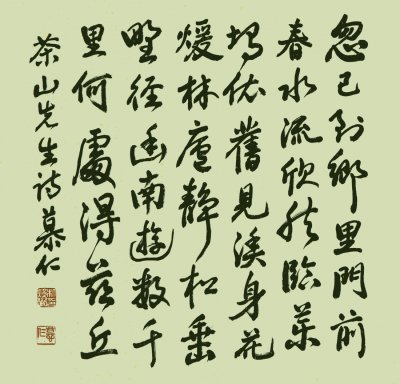 忽已到鄉里門前
春水流欣然臨菜
塢依舊見漁舟花
煖林廬靜松垂
野徑幽南遊數千
里何處得茲丘
茶山先生詩慕仁